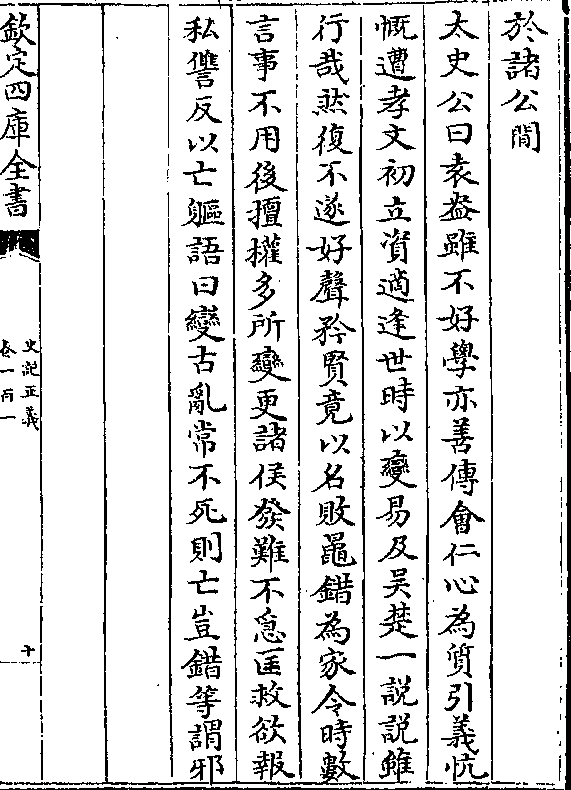 於諸公間
太史公曰袁盎雖不好學亦善傅會仁心為質引義忼
慨遭孝文初立資適逢世時以變易及吳楚一説說雖
行哉然復不遂好聲矜賢竟以名敗鼂錯為家令時數
言事不用後擅權多所變更諸侯發難不急匡救欲報
私讐反以亡軀語曰變古亂常不死則亡豈錯等謂邪
欽定四庫全書
史記正義
卷一百一
十